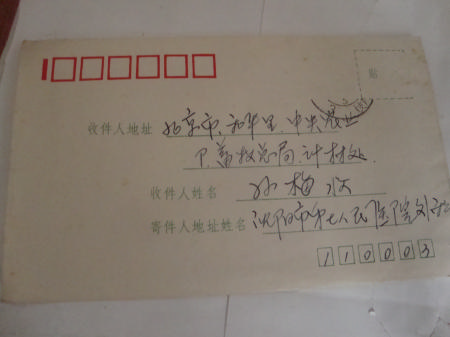 贴
收件人地址 北京市.和平里.中央农业
广播校总局.计财处
收件人姓名 孙梅
寄件人地址姓名 沈阳市第七人民医院刘
110003